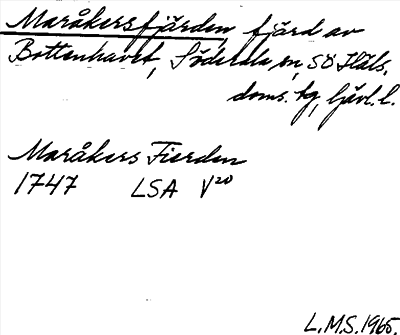 Maråkersfjärden, fjärd av
Bottenhavet, Söderala sn, SÖ Häls.
doms. hg, Gävl. l.
Maråkers Fierden
1747 LSA V20
L.M.S. 1965.